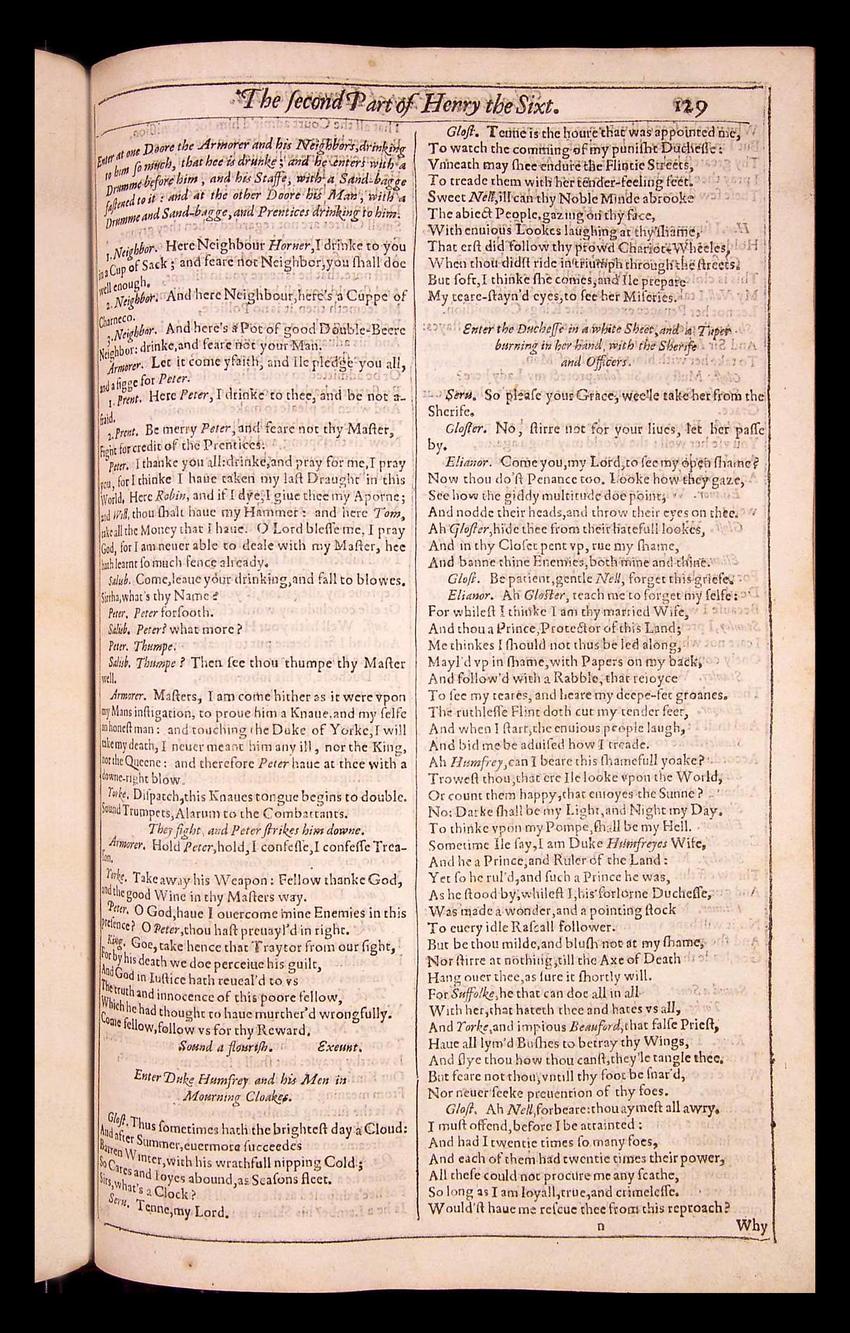 The second Part of Henry the Sixt. 129
Enter at one Doore the Armorer and his Neighbors, drinking
to him so much, that hee is drunke; and he enters with a
Drumme before him, and his Staffe, with a Sand-bagge
fastened to it: and at the other Doore his Man, with a
Drumme and Sand-bagge, and Prentices drinking to him.
1. Neighbor. Here Neighbour Horner, I drinke to you
in a Cup of Sack; and feare not Neighbor, you shall doe
well enough.
2. Neighbor. And here Neighbour, here's a Cuppe of
Charneco.
3. Neighbor. And here's a Pot of good Double-Beere
Neighbor: drinke, and feare not your Man.
Armorer. Let it come yfaith, and Ile pledge you all,
and a figge for Peter.
1. Prent. Here Peter, I drinke to thee, and be not a-
fraid.
2. Prent. Be merry Peter, and feare not thy Master,
Fight for credit of the Prentices.
Peter. I thanke you all: drinke, and pray for me, I pray
you, for I thinke I haue taken my last Draught in this
World. Here Robin, and if I dye, I giue thee my Aporne;
and Will, thou shalt haue my Hammer: and here Tom,
take all the Money that I haue. O Lord blesse me, I pray
God, for I am neuer able to deale with my Master, hee
hath learnt so much fence already.
Salisb. Come, leaue your drinking, and fall to blowes.
Sirrha, what's thy Name?
Peter. Peter forsooth.
Salisb. Peter? what more?
Peter. Thumpe.
Salisb. Thumpe? Then see thou thumpe thy Master
well.
Armorer. Masters, I am come hither as it were vpon
my Mans instigation, to proue him a Knaue, and my selfe
an honest man: and touching the Duke of Yorke, I will
take my death, I neuer meant him any ill, nor the King,
nor the Queene: and therefore Peter haue at thee with a
downe-right blow.
Yorke. Dispatch, this Knaues tongue begins to double.
Sound Trumpets, Alarum to the Combattants.
They fight, and Peter strikes him downe.
Armorer. Hold Peter, hold, I confesse, I confesse Trea-
son.
Yorke. Take away his Weapon: Fellow thanke God,
and the good Wine in thy Masters way.
Peter. O God, haue I ouercome mine Enemies in this
presence? O Peter, thou hast preuayl'd in right.
King. Goe, take hence that Traytor from our sight,
For by his death we doe perceiue his guilt,
And God in Iustice hath reueal'd to vs
The truth and innocence of this poore fellow,
Which he had thought to haue murther'd wrongfully.
Come fellow, follow vs for thy Reward.
Sound a flourish. Exeunt.
Enter Duke Humfrey and his Men in
Mourning Cloakes.
Glost. Thus sometimes hath the brightest day a Cloud:
And after Summer, euermore succeedes
Barren Winter, with his wrathfull nipping Cold;
So Cares and Ioyes abound, as Seasons fleet.
Sirs, what's a Clock?
Seru. Tenne, my Lord.
Glost. Tenne is the houre that was appointed me,
To watch the comming of my punisht Duchesse:
Vnneath may shee endure the Flintie Streets,
To treade them with her tender-feeling feet.
Sweet Nell, ill can thy Noble Minde abrooke
The abiect People, gazing on thy face,
With enuious Lookes laughing at thy shame,
That erst did follow thy prowd Chariot-Wheeles,
When thou didst ride in triumph through the streets.
But soft, I thinke she comes, and Ile prepare
My teare-stayn'd eyes, to see her Miseries.
Enter the Duchesse in a white Sheet, and a Taper
burning in her hand, with the Sherife
and Officers.
Seru. So please your Grace, wee'le take her from the
Sherife.
Gloster. No, stirre not for your liues, let her passe
by.
Elianor. Come you, my Lord, to see my open shame?
Now thou do'st Penance too. Looke how they gaze,
See how the giddy multitude doe point,
And nodde their heads, and throw their eyes on thee.
Ah Gloster, hide thee from their hatefull lookes,
And in thy Closet pent vp, rue my shame,
And banne thine Enemies, both mine and thine.
Glost. Be patient, gentle Nell, forget this griefe.
Elianor. Ah Gloster, teach me to forget my selfe:
For whilest I thinke I am thy married Wife,
And thou a Prince, Protector of this Land;
Me thinkes I should not thus be led along,
Mayl'd vp in shame, with Papers on my back,
And follow'd with a Rabble, that reioyce
To see my teares, and heare my deepe-fet groanes.
The ruthlesse Flint doth cut my tender feet,
And when I start, the enuious people laugh,
And bid me be aduised how I treade.
Ah Humfrey, can I beare this shamefull yoake?
Trowest thou, that ere Ile looke vpon the World,
Or count them happy, that enioyes the Sunne?
No: Darke shall be my Light, and Night my Day.
To thinke vpon my Pompe, shall be my Hell.
Sometime Ile say, I am Duke Humfreyes Wife,
And he a Prince, and Ruler of the Land:
Yet so he rul'd, and such a Prince he was,
As he stood by, whilest I, his forlorne Duchesse,
Was made a wonder, and a pointing stock
To euery idle Rascall follower.
But be thou milde, and blush not at my shame,
Nor stirre at nothing, till the Axe of Death
Hang ouer thee, as sure it shortly will.
For Suffolke, he that can doe all in all
With her, that hateth thee and hates vs all,
And Yorke, and impious Beauford, that false Priest,
Haue all lym'd Bushes to betray thy Wings,
And flye thou how thou canst, they'le tangle thee.
But feare not thou, vntill thy foot be snar'd,
Nor neuer seeke preuention of thy foes.
Glost. Ah Nell, forbeare: thou aymest all awry.
I must offend, before I be attainted:
And had I twentie times so many foes,
And each of them had twentie times their power,
All these could not procure me any scathe,
So long as I am loyall, true, and crimelesse.
Would'st haue me rescue thee from this reproach?
n Why